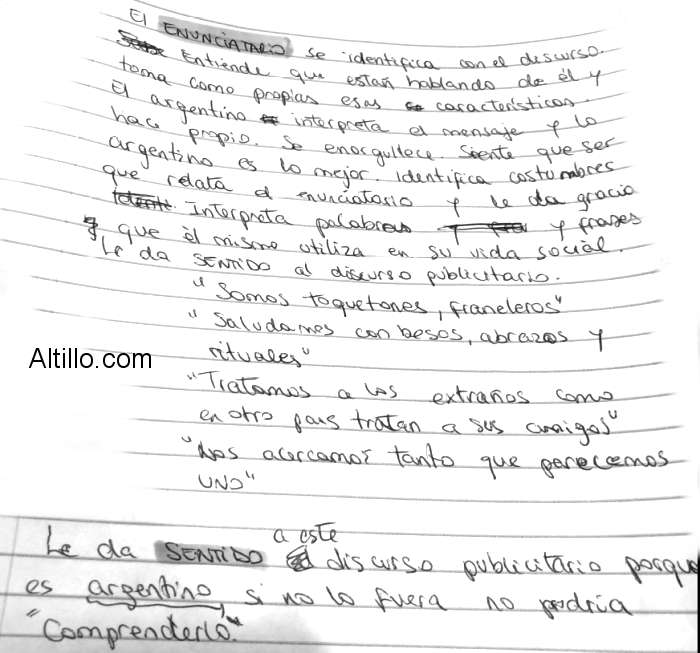 El ENUNCIATARIO se identifica con el discurso.
Entiende que están hablando de él y
toma como propias esas características.
El argentino interpreta el mensaje y lo
hace propio. Se enorgullece. Siente que ser
argentino es lo mejor. Identifica costumbres
que relata el enunciatario y le da gracia
Interpreta palabras y frases
que él mismo utiliza en su vida social.
Le da SENTIDO al discurso publicitario.
"Somos toquetones, franeleros"
"Saludamos con besos, abrazos y
rituales"
Altillo.com
"Tratamos a los extraños como
en otro país tratan a sus amigos"
"Nos acercamos tanto que parecemos
UNO"
Le da SENTIDO a este discurso publicitario porque
es argentino, si no lo fuera no podría
"Comprenderlo".